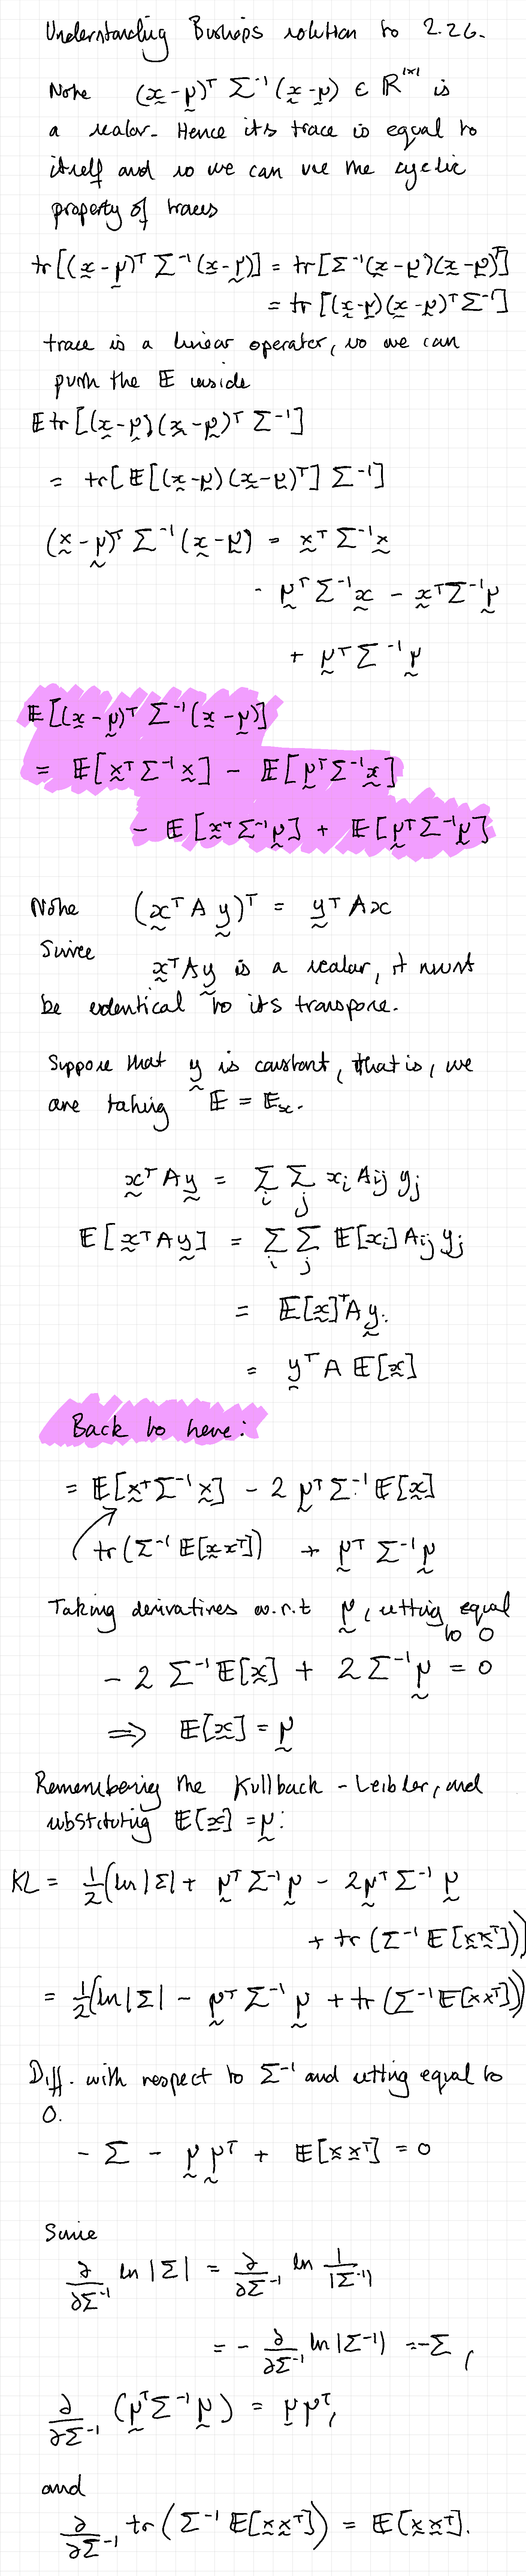 Understanding Bishops solution to 2.26.
Note (x - μ)ᵀ Σ⁻¹ (x - μ) ∈ ℝ¹ˣ¹ is
a scalar. Hence its trace is equal to
itself and so we can use the cyclic
property of traces
tr[(x - μ)ᵀ Σ⁻¹ (x - μ)] = tr[Σ⁻¹(x - μ)(x - μ)ᵀ]
= tr[(x - μ)(x - μ)ᵀ Σ⁻¹]
trace is a linear operator, so we can
push the 𝔼 inside
𝔼 tr[(x - μ)(x - μ)ᵀ Σ⁻¹]
= tr[𝔼[(x - μ)(x - μ)ᵀ] Σ⁻¹]
(x - μ)ᵀ Σ⁻¹ (x - μ) = xᵀ Σ⁻¹ x
- μᵀ Σ⁻¹ x - xᵀ Σ⁻¹ μ
+ μᵀ Σ⁻¹ μ
𝔼[(x - μ)ᵀ Σ⁻¹ (x - μ)]
= 𝔼[xᵀ Σ⁻¹ x] - 𝔼[μᵀ Σ⁻¹ x]
- 𝔼[xᵀ Σ⁻¹ μ] + 𝔼[μᵀ Σ⁻¹ μ]
Note (xᵀ A y)ᵀ = yᵀ A x
Since
xᵀ A y is a scalar, it must
be identical to its transpose.
Suppose that y is constant, that is, we
are taking 𝔼 = 𝔼ₓ.
xᵀ A y = Σᵢ Σⱼ xᵢ Aij yⱼ
𝔼[xᵀ A y] = Σᵢ Σⱼ 𝔼[xᵢ] Aij yⱼ
= 𝔼[x]ᵀ A y.
= yᵀ A 𝔼[x]
Back to here:
= 𝔼[xᵀ Σ⁻¹ x] - 2 μᵀ Σ⁻¹ 𝔼[x]
tr(Σ⁻¹ 𝔼[x xᵀ]) + μᵀ Σ⁻¹ μ
Taking derivatives w.r.t μ, setting equal
to 0
- 2 Σ⁻¹ 𝔼[x] + 2 Σ⁻¹ μ = 0
⟹ 𝔼[x] = μ
Remembering the Kullback-Leibler, and
substituting 𝔼[x] = μ:
KL = ½(ln|Σ| + μᵀ Σ⁻¹ μ - 2μᵀ Σ⁻¹ μ
+ tr(Σ⁻¹ 𝔼[x xᵀ]))
= ½(ln|Σ| - μᵀ Σ⁻¹ μ + tr(Σ⁻¹ 𝔼[x xᵀ]))
Diff. with respect to Σ⁻¹ and setting equal to
0.
- Σ - μ μᵀ + 𝔼[x xᵀ] = 0
Since
∂/∂Σ⁻¹ ln|Σ| = ∂/∂Σ⁻¹ ln 1/|Σ⁻¹|
= - ∂/∂Σ⁻¹ ln|Σ⁻¹| = -Σ,
∂/∂Σ⁻¹ (μᵀ Σ⁻¹ μ) = μ μᵀ,
and
∂/∂Σ⁻¹ tr(Σ⁻¹ 𝔼[x xᵀ]) = 𝔼[x xᵀ].